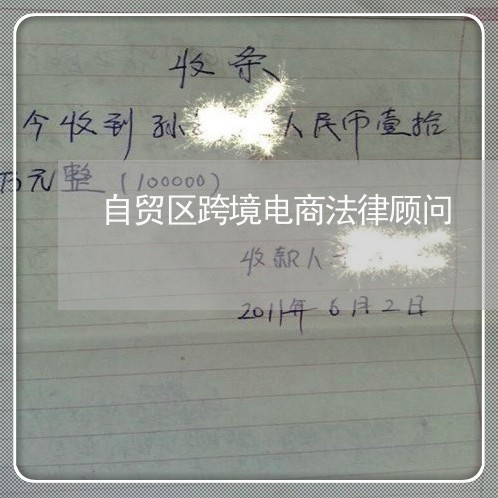 收条
今收到孙 人民币壹拾
万元整（100000）
自贸区跨境电商法律顾问
收款人
2011年6月2日